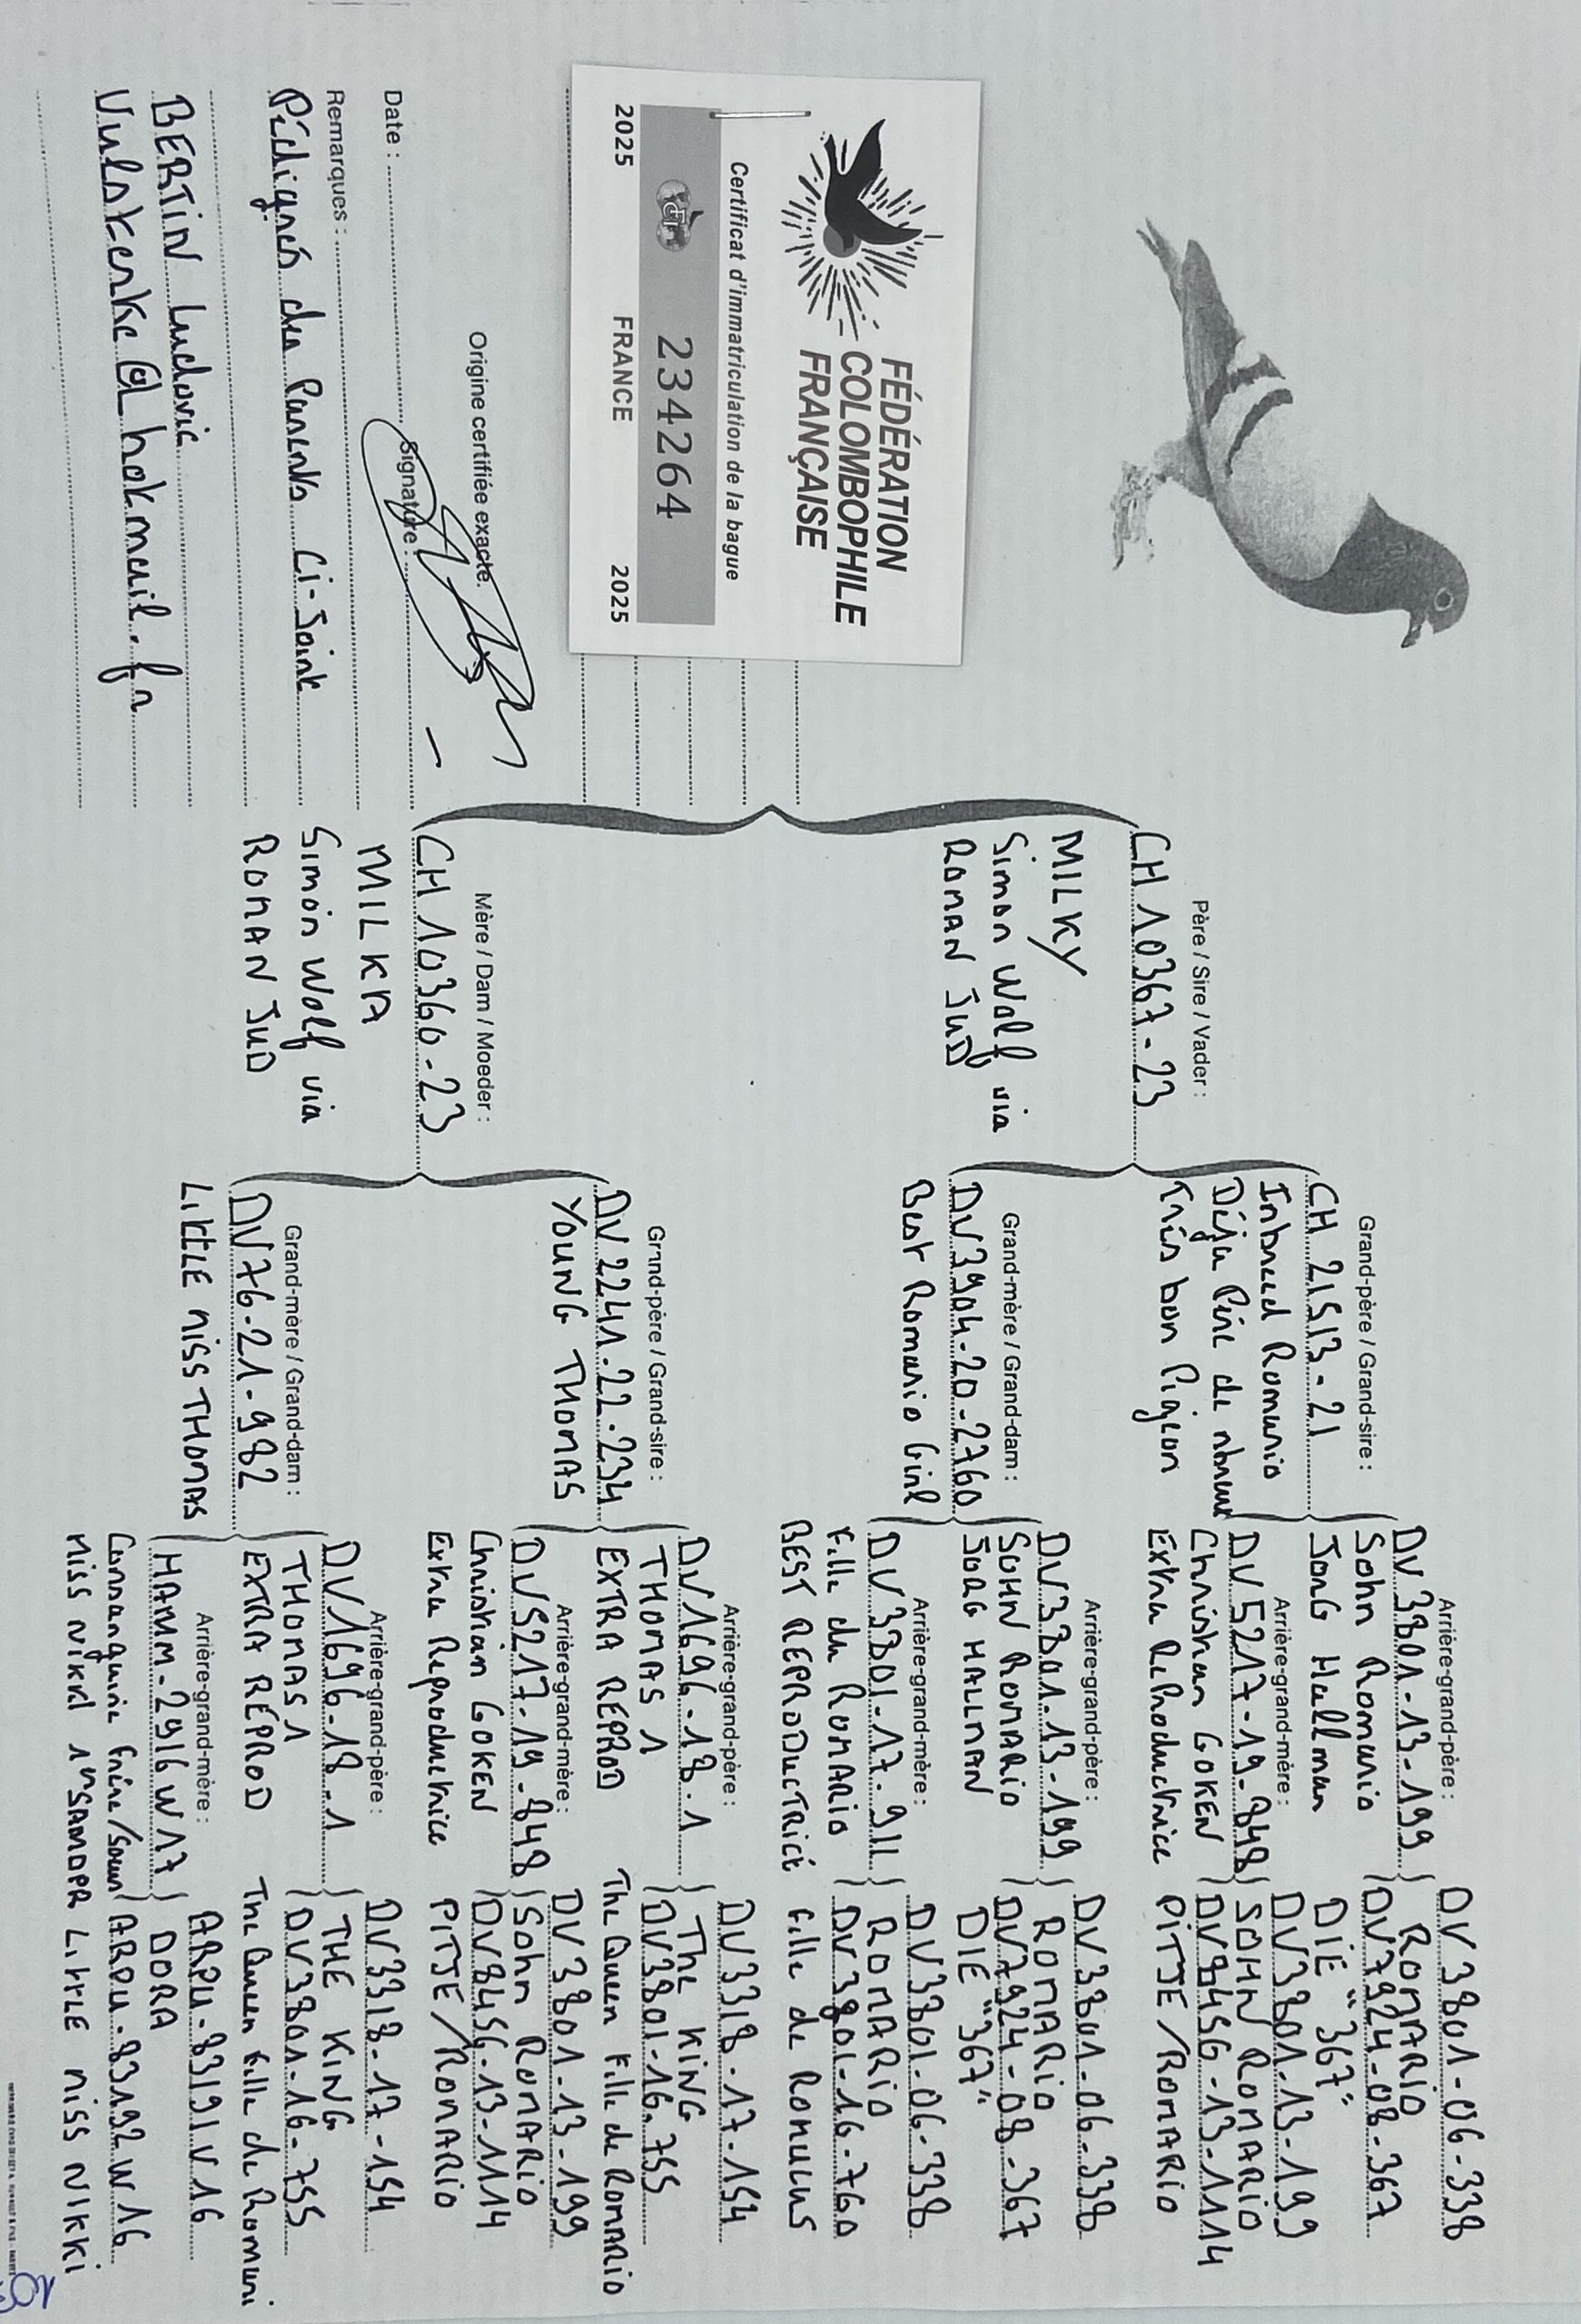 FÉDÉRATION
COLOMBOPHILE
FRANÇAISE
Certificat d'immatriculation de la bague
234264
2025 FRANCE 2025
Origine certifiée exacte.
Date : Signature :
Remarques :
Pédigrés des Parents Ci-Joint
BERTIN Ludovic
Vulskenke@hotmail.fr
Père / Sire / Vader :
CH 10367-23
MILKY
Simon Wolf via
ROMAN JUD
Mère / Dam / Moeder :
CH 10360-23
MILKA
Simon Wolf via
ROMAN JUD
Grand-père / Grand-sire :
CH 21513-21
Inbreed Romario
Déja Père de
Très bon Pigeon
Grand-mère / Grand-dam :
DV3904-20-2760
Best Romario Girl
Grand-père / Grand-sire :
DV2241-22-234
YOUNG THOMAS
Grand-mère / Grand-dam :
DV76-21-982
LITTLE MISS THOMAS
Arrière-grand-père :
DV3801-13-199
Sohn Romario
JORG Hallman
Arrière-grand-mère :
DV5217-19-848
Christian GOKEN
Extra Reproductrice
Arrière-grand-père :
DV3801-13-199
SOHN ROMARIO
JORG HALLMAN
Arrière-grand-mère :
DV3801-17-911
Fille du ROMARIO
BEST REPRODUCTRICE
Arrière-grand-père :
DV1696-18-1
THOMAS 1
EXTRA REPROD
Arrière-grand-mère :
DV5217-19-848
Christian GOKEN
Extra Reproductrice
Arrière-grand-père :
DV1696-18-1
THOMAS 1
EXTRA REPROD
Arrière-grand-mère :
HAMM-2916W17
Consanguine Frère/Soeur
MISS NIKKI LITTLE MISS NIKKI
DV3801-06-338
ROMARIO
DV7924-08-367
DIE "367"
DV3801-13-199
SOHN ROMARIO
DV8456-13-1114
PITJE/ROMARIO
DV3801-06-338
ROMARIO
DV7924-08-367
DIE "367"
DV3801-06-338
ROMARIO
DV3801-16-760
Fille de ROMULUS
DV3318-17-154
The KING
DV3801-16-755
The Queen Fille de ROMARIO
DV3801-13-199
Sohn ROMARIO
DV8456-13-1114
PITJE/ROMARIO
DV3318-17-154
THE KING
DV3801-16-755
The Queen Fille de Romari
ARPU-83191V16
DORA
ARPU-83192W16